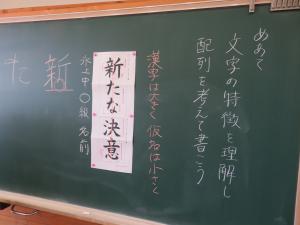 めあて
文字の特徴を理解し
配列を考えて書こう
漢字は大きく 仮名は小さく
新たな決意
氷上中 〇級 名前
新
た